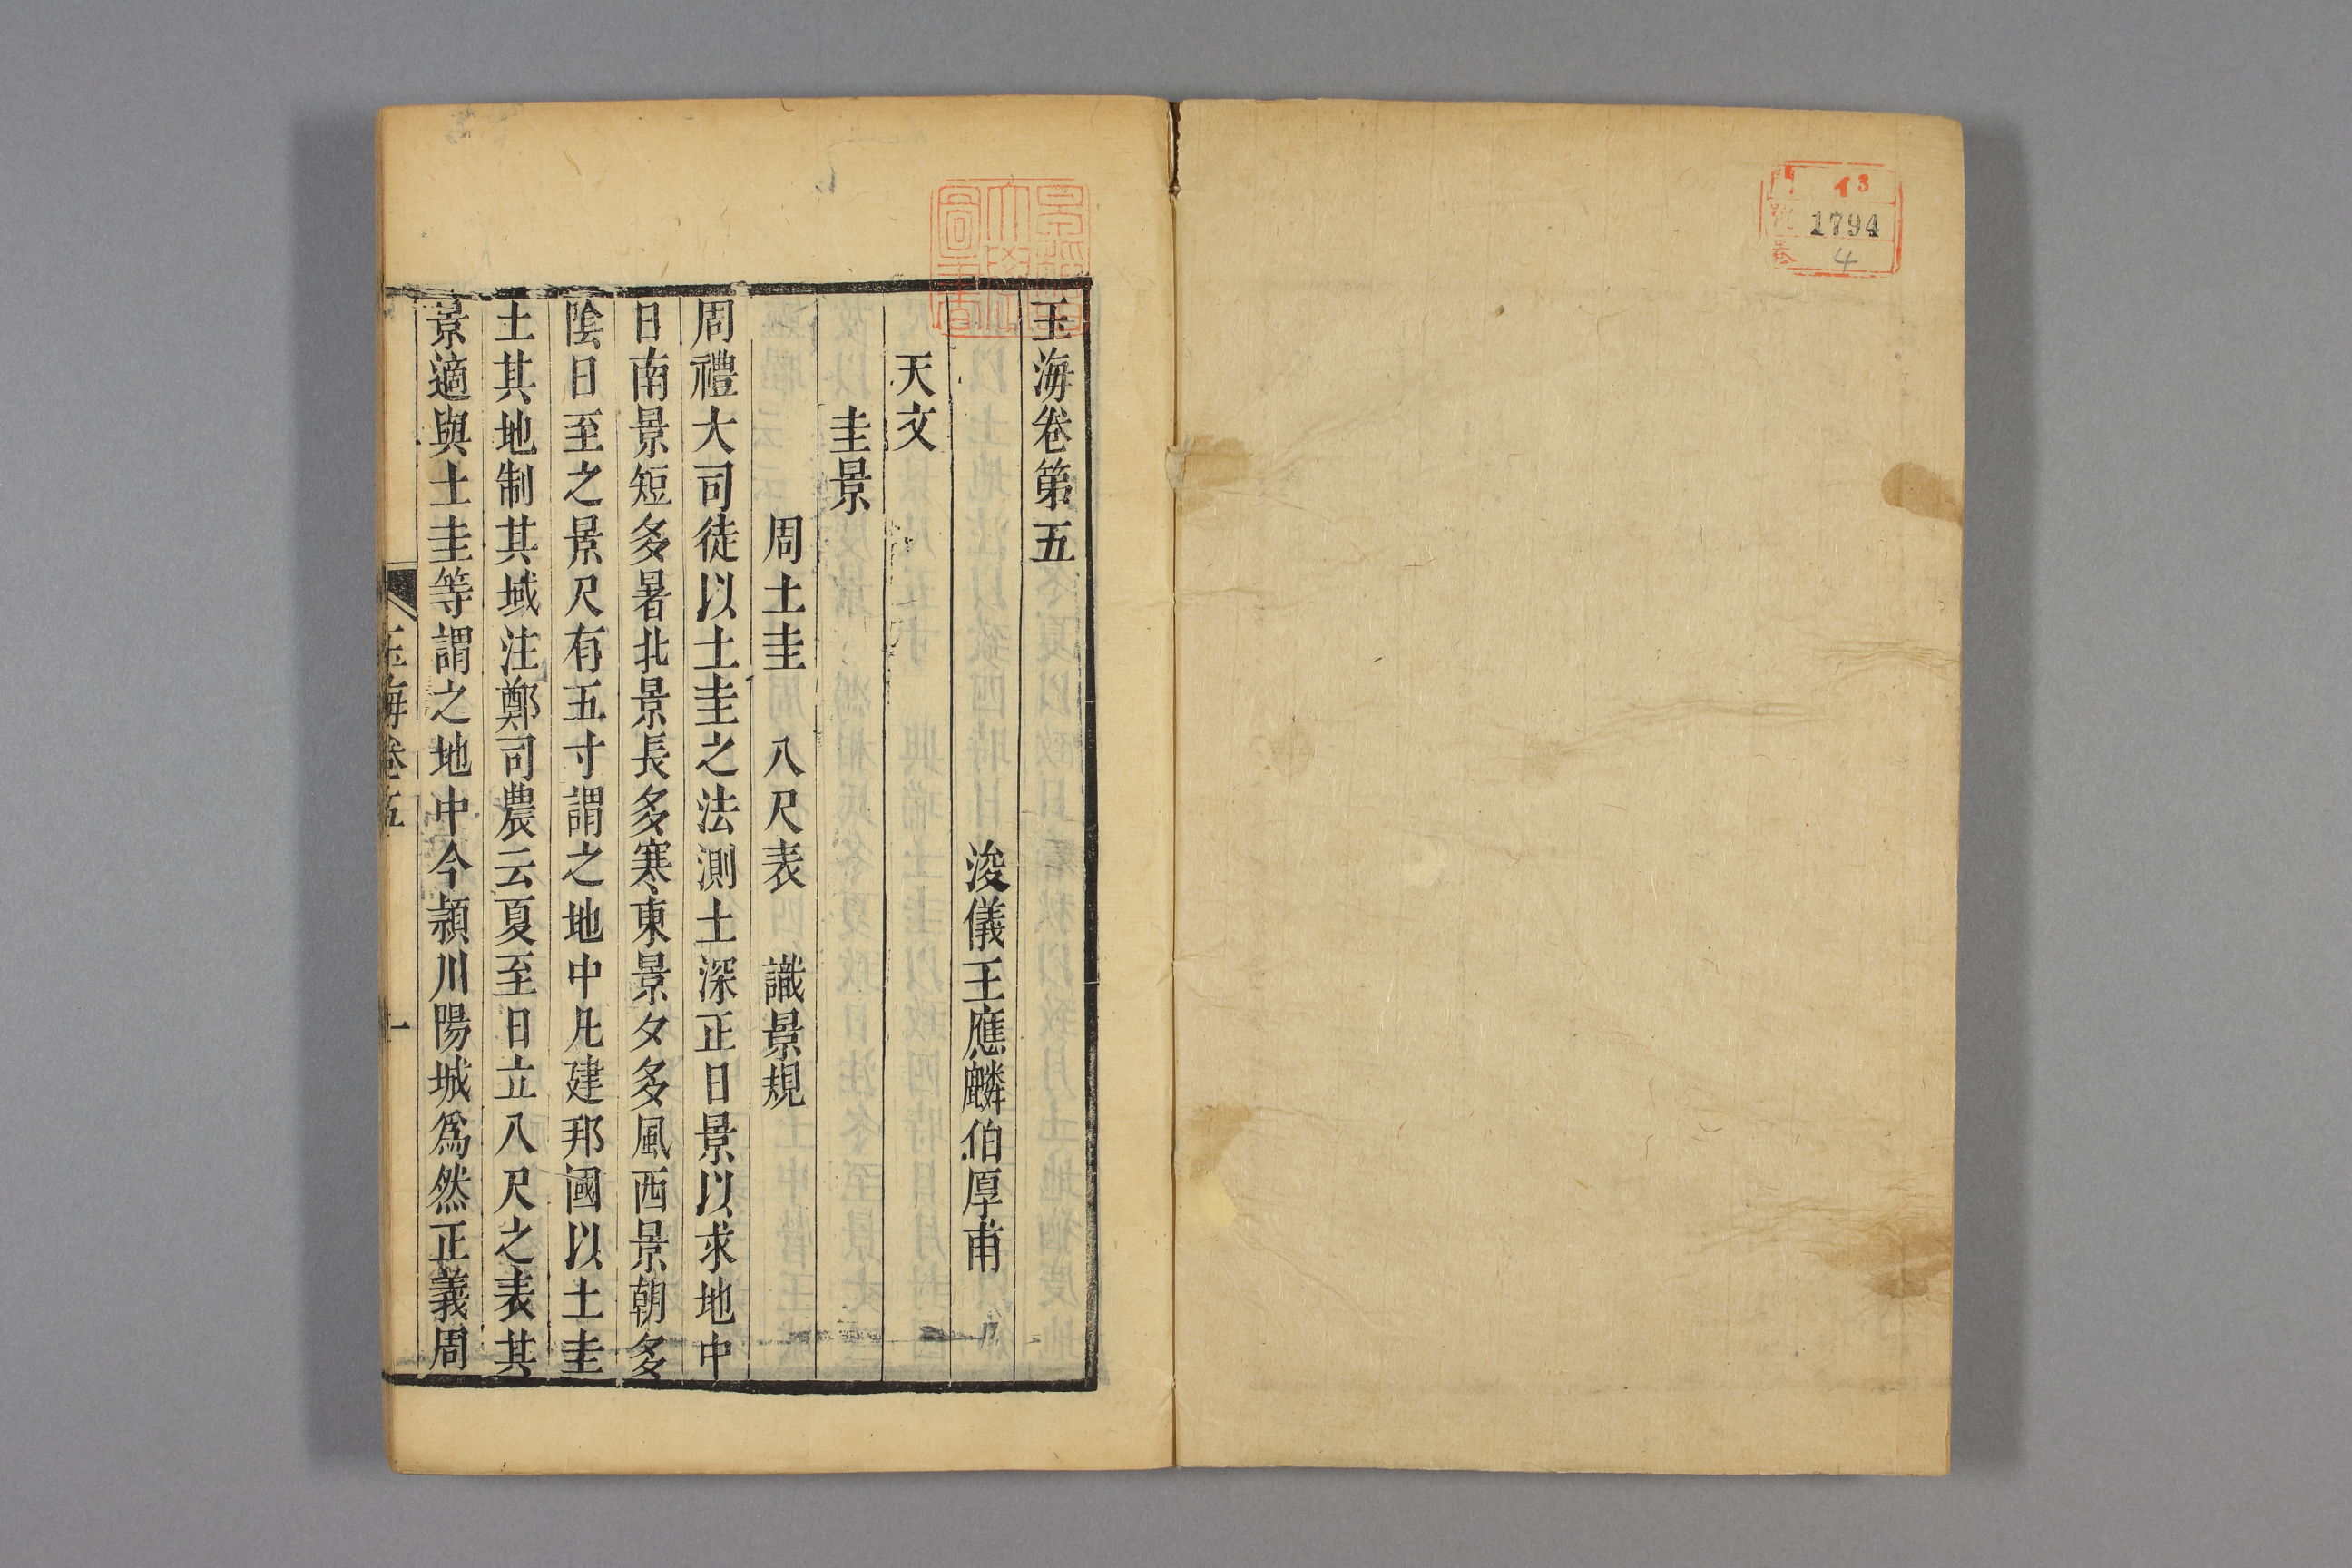 イ3
1794
4
玉海卷第五
浚儀王應麟伯厚甫
天文
圭景
周土圭 八尺表 識景規
周禮大司徒以土圭之法測土深正日景以求地中
日南景短多暑北景長多寒東景夕多風西景朝多
陰日至之景尺有五寸謂之地中凡建邦國以土圭
土其地制其域注鄭司農云夏至日立八尺之表其
景適與土圭等謂之地中今潁川陽城爲然正義周
玉海卷五
一